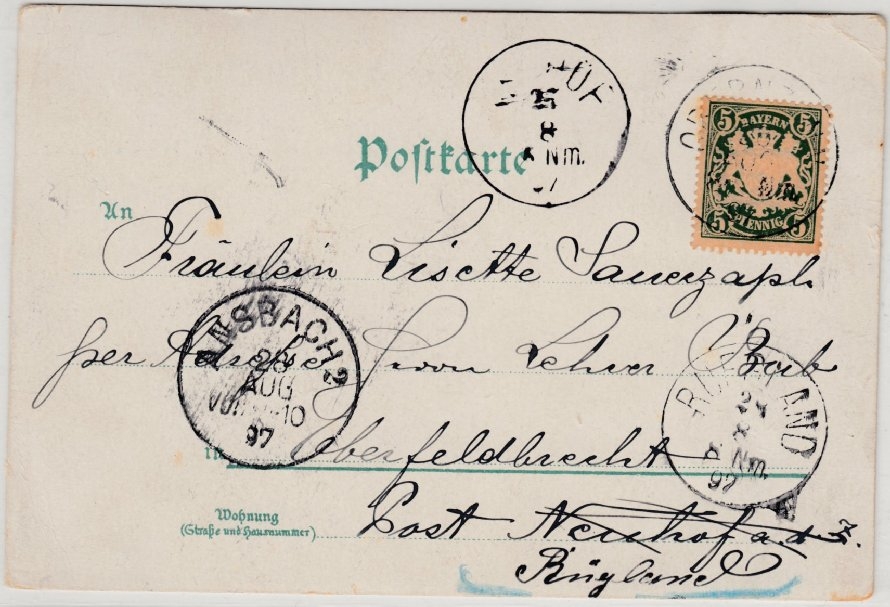 HOF
25
8
Nm.
5 BAYERN 5
5 PFENNIG 5
Postkarte
An
Fräulein Lisette Sauerzapf
per Adresse Herrn Lehrer Barb
ANSBACH 2
AUG
VORM
10
97
in Oberfeldbrecht
RÜGLAND
8
Nm.
97
Wohnung
(Straße und Hausnummer)
Post Neuhof a. d. Z.
Rügland